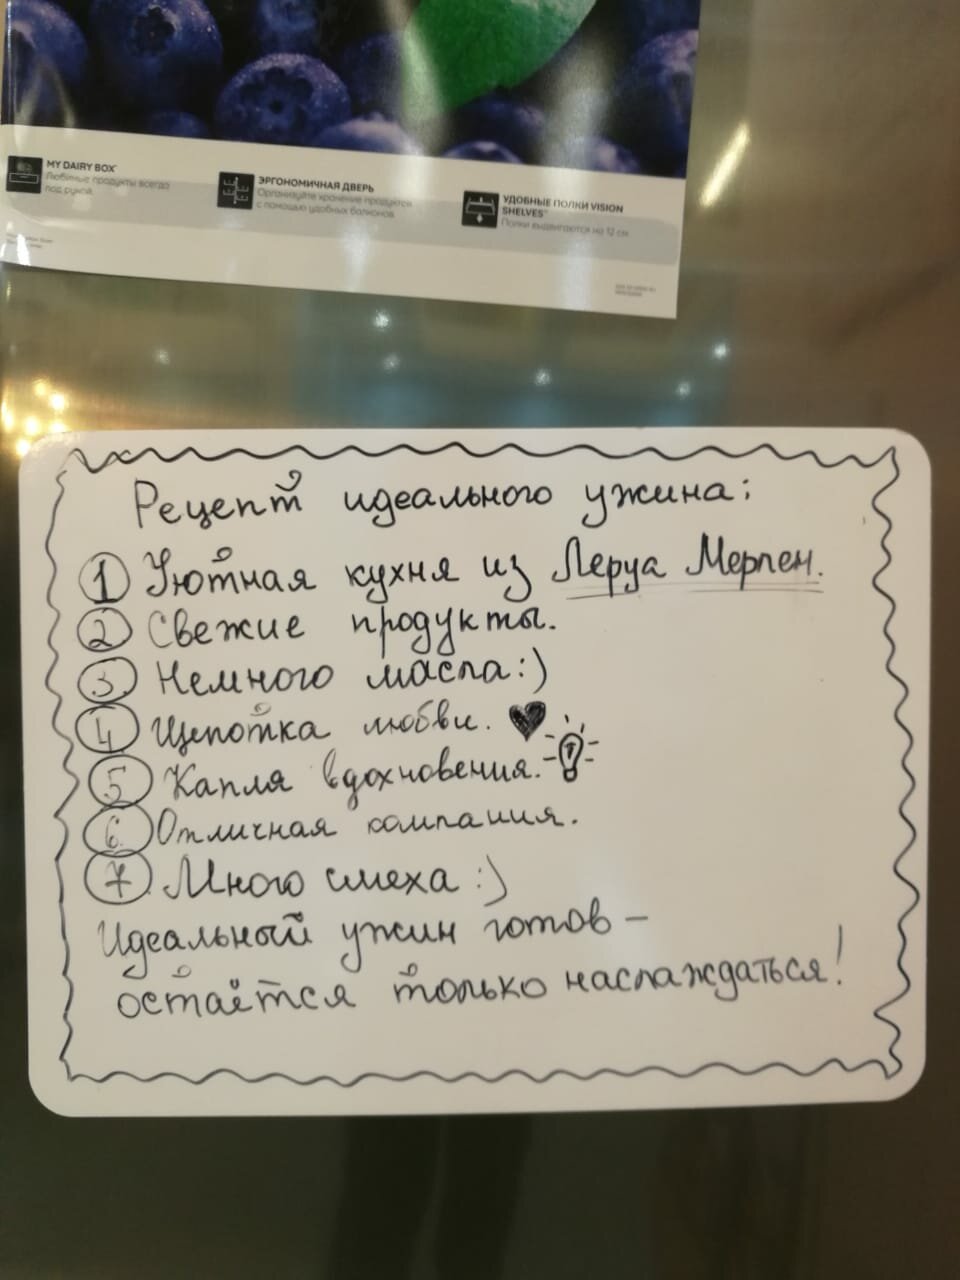 MY DAIRY BOX™
Любимые продукты всегда
под рукой
ЭРГОНОМИЧНАЯ ДВЕРЬ
Организуйте хранение продуктов
с помощью удобных балконов
УДОБНЫЕ ПОЛКИ VISION
SHELVES™
Полки выдвигаются на 12 см
Рецепт идеального ужина:
1 Уютная кухня из Леруа Мерлен.
2 Свежие продукты.
3. Немного масла:)
4 Щепотка любви. ♥
5 Капля вдохновения.
6. Отличная компания.
7. Много смеха :)
Идеальный ужин готов –
остаётся только наслаждаться!